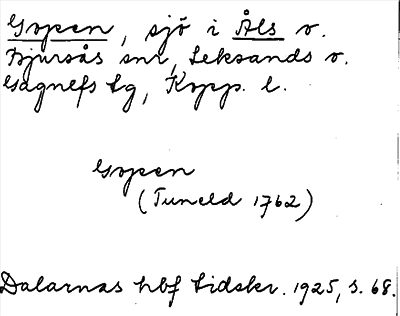 Gopen, sjö i Åls o.
Bjursås snr, Leksands o.
Gagnefs tg, Kopp. l.
Gopen
(Tuneld 1762)
Dalarnas hbf tidskr. 1925, s. 68.